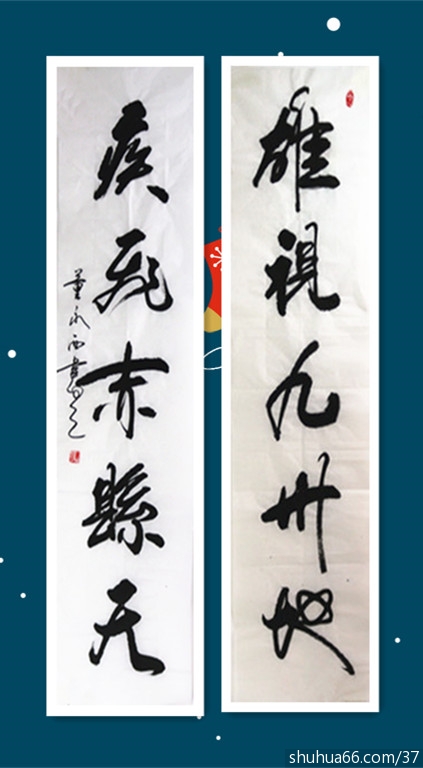 雄視九州地
疾飛赤縣天
董永西書
shuhua66.com/37